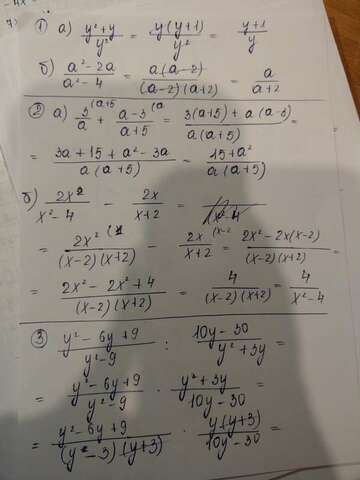 ① а) (y² + y)/y² = y(y+1)/y² = (y+1)/y
б) (a² - 2a)/(a² - 4) = a(a-2)/((a-2)(a+2)) = a/(a+2)
② а) 3/a (a+5 + (a-3)/(a+5) (a = (3(a+5) + a(a-3))/(a(a+5)) =
= (3a + 15 + a² - 3a)/(a(a+5)) = (15 + a²)/(a(a+5))
б) 2x²/(x² - 4) - 2x/(x+2) =
= 2x²/((x-2)(x+2)) (1 - 2x/(x+2) (x-2 = (2x² - 2x(x-2))/((x-2)(x+2)) =
= (2x - 2x² + 4)/((x-2)(x+2)) = 4/((x-2)(x+2)) = 4/(x² - 4)
③ (y² - 6y + 9)/(y² - 9) : (10y - 30)/(y² + 3y) =
= (y² - 6y + 9)/(y² - 9) · (y² + 3y)/(10y - 30) =
= (y² - 6y + 9)/((y - 3)(y+3)) · y(y+3)/(10y - 30) =